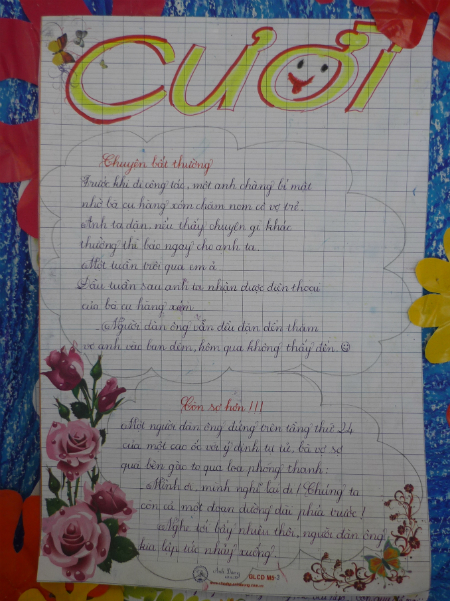 CƯỜI
Chuyện bất thường
Trước khi đi công tác, một anh chàng bí mật
nhờ bà cụ hàng xóm chăm nom cô vợ trẻ.
Anh ta dặn nếu thấy chuyện gì khác
thường thì báo ngay cho anh ta.
Một tuần trôi qua êm ả
Đầu tuần sau anh ta nhận được điện thoại
của bà cụ hàng xóm.
Người đàn ông vẫn đều đặn đến thăm
vợ anh vào ban đêm, hôm qua không thấy đến.
Còn sợ hơn !!!
Một người đàn ông đứng trên tầng thứ 24
của một cao ốc với ý định tự tử, bà vợ sợ
quá bèn gào to qua loa phóng thanh:
Mình ơi, mình nghĩ lại đi! Chúng ta
còn cả một đoạn đường dài phía trước!
Nghe tới bấy nhiêu thôi, người đàn ông
kia lập tức nhảy xuống.
GLCD M5-2